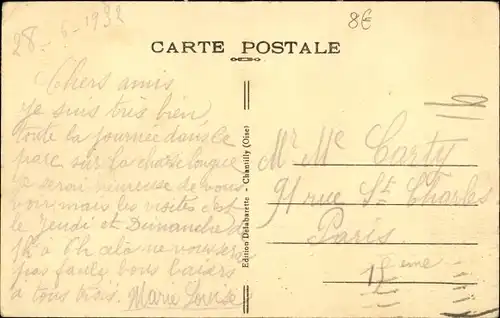 28-6-1932
8€
CARTE POSTALE
Chers amis
je suis très bien
toute la journée dans le
parc sur la chaise longue
je serai heureuse de vous
voir mais les visites c'est
le jeudi et Dimanche de
à cela ne vous
pas bons baisers
à tous trois. Marie Louise
Edition Delabarette - Chantilly (Oise)
Mr Me Carty
91 rue St Charles
Paris
15 eme